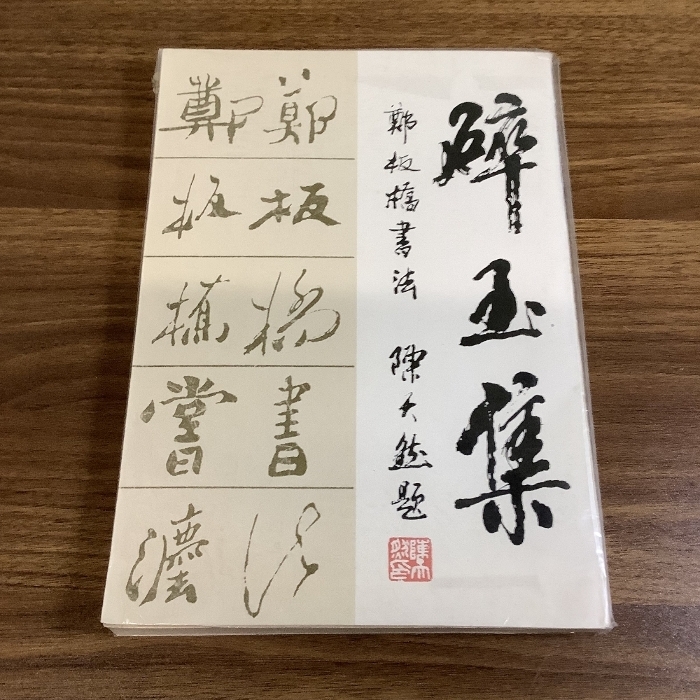 碎玉集
鄭板橋書法 陳大然題
鄭板橋書法
鄭板橋書灋